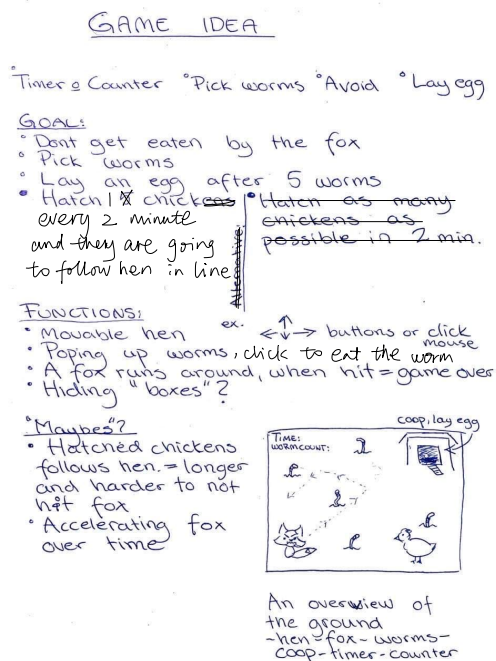 GAME IDEA
°Timer & Counter °Pick worms °Avoid °Lay egg
GOAL:
° Dont get eaten by the fox
° Pick worms
° Lay an egg after 5 worms
• Hatch 1 chick
every 2 minute
and they are going
to follow hen in line
Alternative
• Hatch as many
chickens as
possible in 2 min.
FUNCTIONS:
° Movable hen ex. ←↑↓→ buttons or click mouse
° Poping up worms, click to eat the worm
° A fox runs around, when hit = game over
° Hiding "boxes"?
"Maybes"?
• Hatched chickens
follows hen. = longer
and harder to not
hit fox
° Accelerating fox
over time
coop, lay egg
TIME:
WORMCOUNT:
An overview of
the ground
~hen~fox~worms~
coop-timer-counter